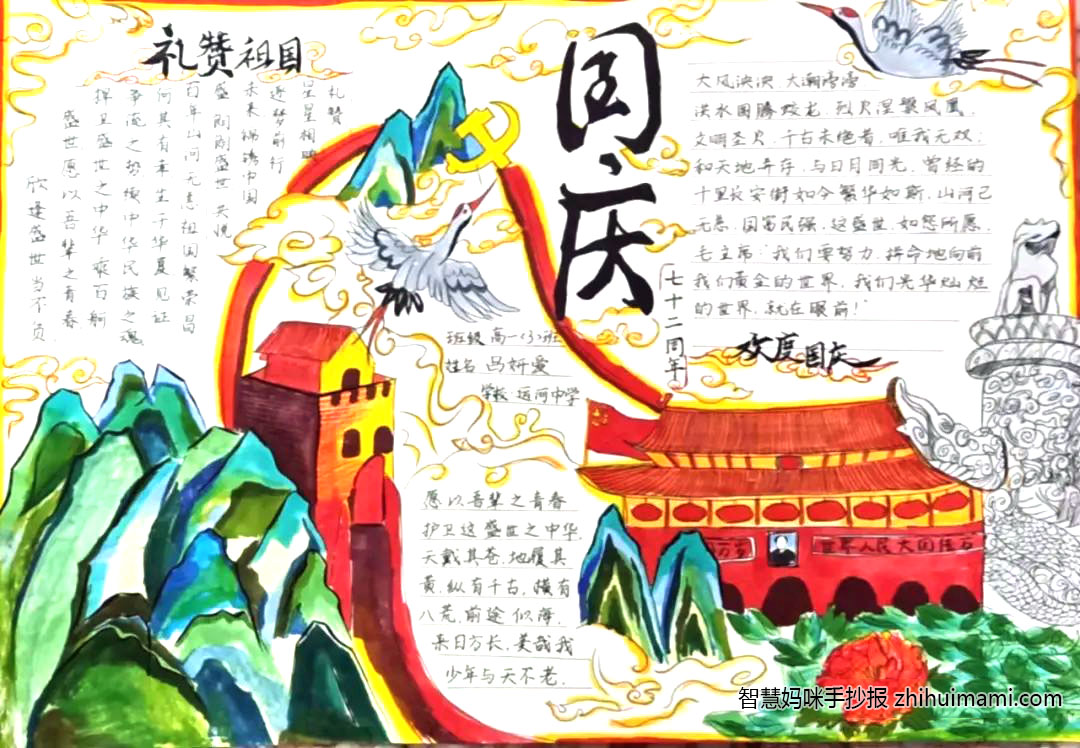 礼赞祖国
礼赞
星星相映
逐梦前行
未来锦绣中国
百年山河无恙祖国繁荣昌
何其有幸生于华夏见证
捍卫盛世之中华乘百舸
盛世愿以吾辈之青春
欣逢盛世当不负
国庆
七十二周年
大风泱泱,大潮滂滂
洪水图腾蛟龙,烈火涅槃凤凰,
文明圣火,千古未绝者,唯我无双;
和天地并存,与日月同光,曾经的
十里长安街如今繁华如斯,山河已
无恙,国富民强,这盛世,如您所愿,
毛主席:我们要努力,拼命地向前
我们黄金的世界,我们光华灿烂
的世界,就在眼前!
欢度国庆
班级 高一(3)班
姓名 吕妍爱
学校 运河中学
愿以吾辈之青春
护卫这盛世之中华,
天戴其苍,地履其
黄,纵有千古,横有
八荒,前途似海,
来日方长,美哉我
少年与天不老.
世界人民大团结万
智慧妈咪手抄报 zhihuimami.com